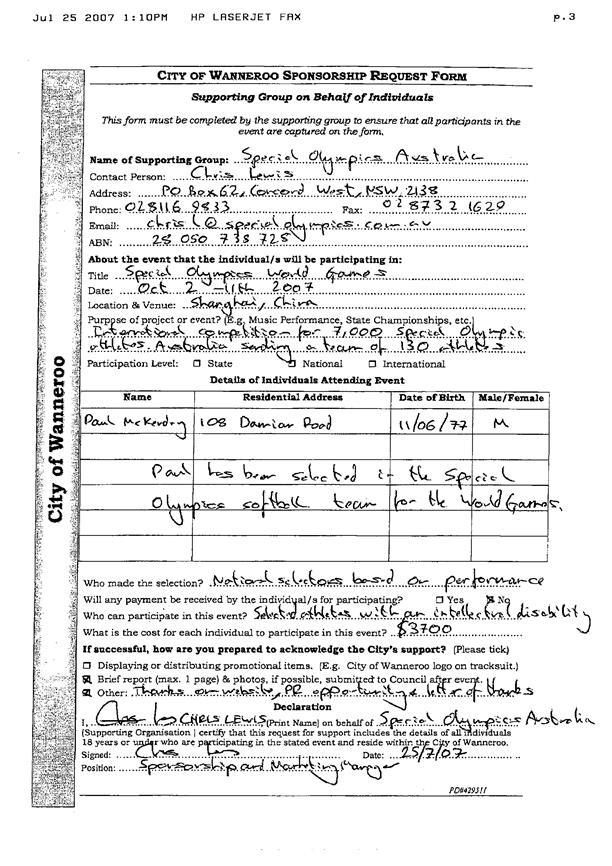 Jul 25 2007 1:10PM HP LASERJET FAX p.3
CITY OF WANNEROO SPONSORSHIP REQUEST FORM
Supporting Group on Behalf of Individuals
This form must be completed by the supporting group to ensure that all participants in the
event are captured on the form.
Name of Supporting Group: Special Olympics Australia
Contact Person: Chris Lewis
Address: PO Box 62, Concord West, NSW 2138
Phone: 028116 9833 Fax: 028732 1629
Email: chrisl@specialolympics.com.au
ABN: 28 050 738 728
About the event that the individual/s will be participating in:
Title Special Olympics World Games
Date: Oct 2 - 11th 2007
Location & Venue: Shanghai, China
Purppse of project or event? (E.g. Music Performance, State Championships, etc.)
International competition for 7,000 Special Olympic
athletes. Australia sending a team of 130 athletes
Participation Level: State National International
Details of Individuals Attending Event
Name Residential Address Date of Birth Male/Female
Paul McKendry 108 Damian Road 11/06/77 M
Paul has been selected in the Special
Olympics softball team for the World Games.
Who made the selection? National selectors based on performance
Will any payment be received by the individual/s for participating? Yes No
Who can participate in this event? Selected athletes with an intellectual disability
What is the cost for each individual to participate in this event? $3700
If successful, how are you prepared to acknowledge the City's support? (Please tick)
Displaying or distributing promotional items. (E.g. City of Wanneroo logo on tracksuit.)
Brief report (max. 1 page) & photos, if possible, submitted to Council after event.
Other: Thanks on website, PR opportunity & letter of thanks
Declaration
I, CHRIS LEWIS (Print Name) on behalf of Special Olympics Australia
(Supporting Organisation) certify that this request for support includes the details of all individuals
18 years or under who are participating in the stated event and reside within the City of Wanneroo.
Signed: Date: 25/7/07
Position: Sponsorship and Marketing Manager
PD#429311
City of Wanneroo